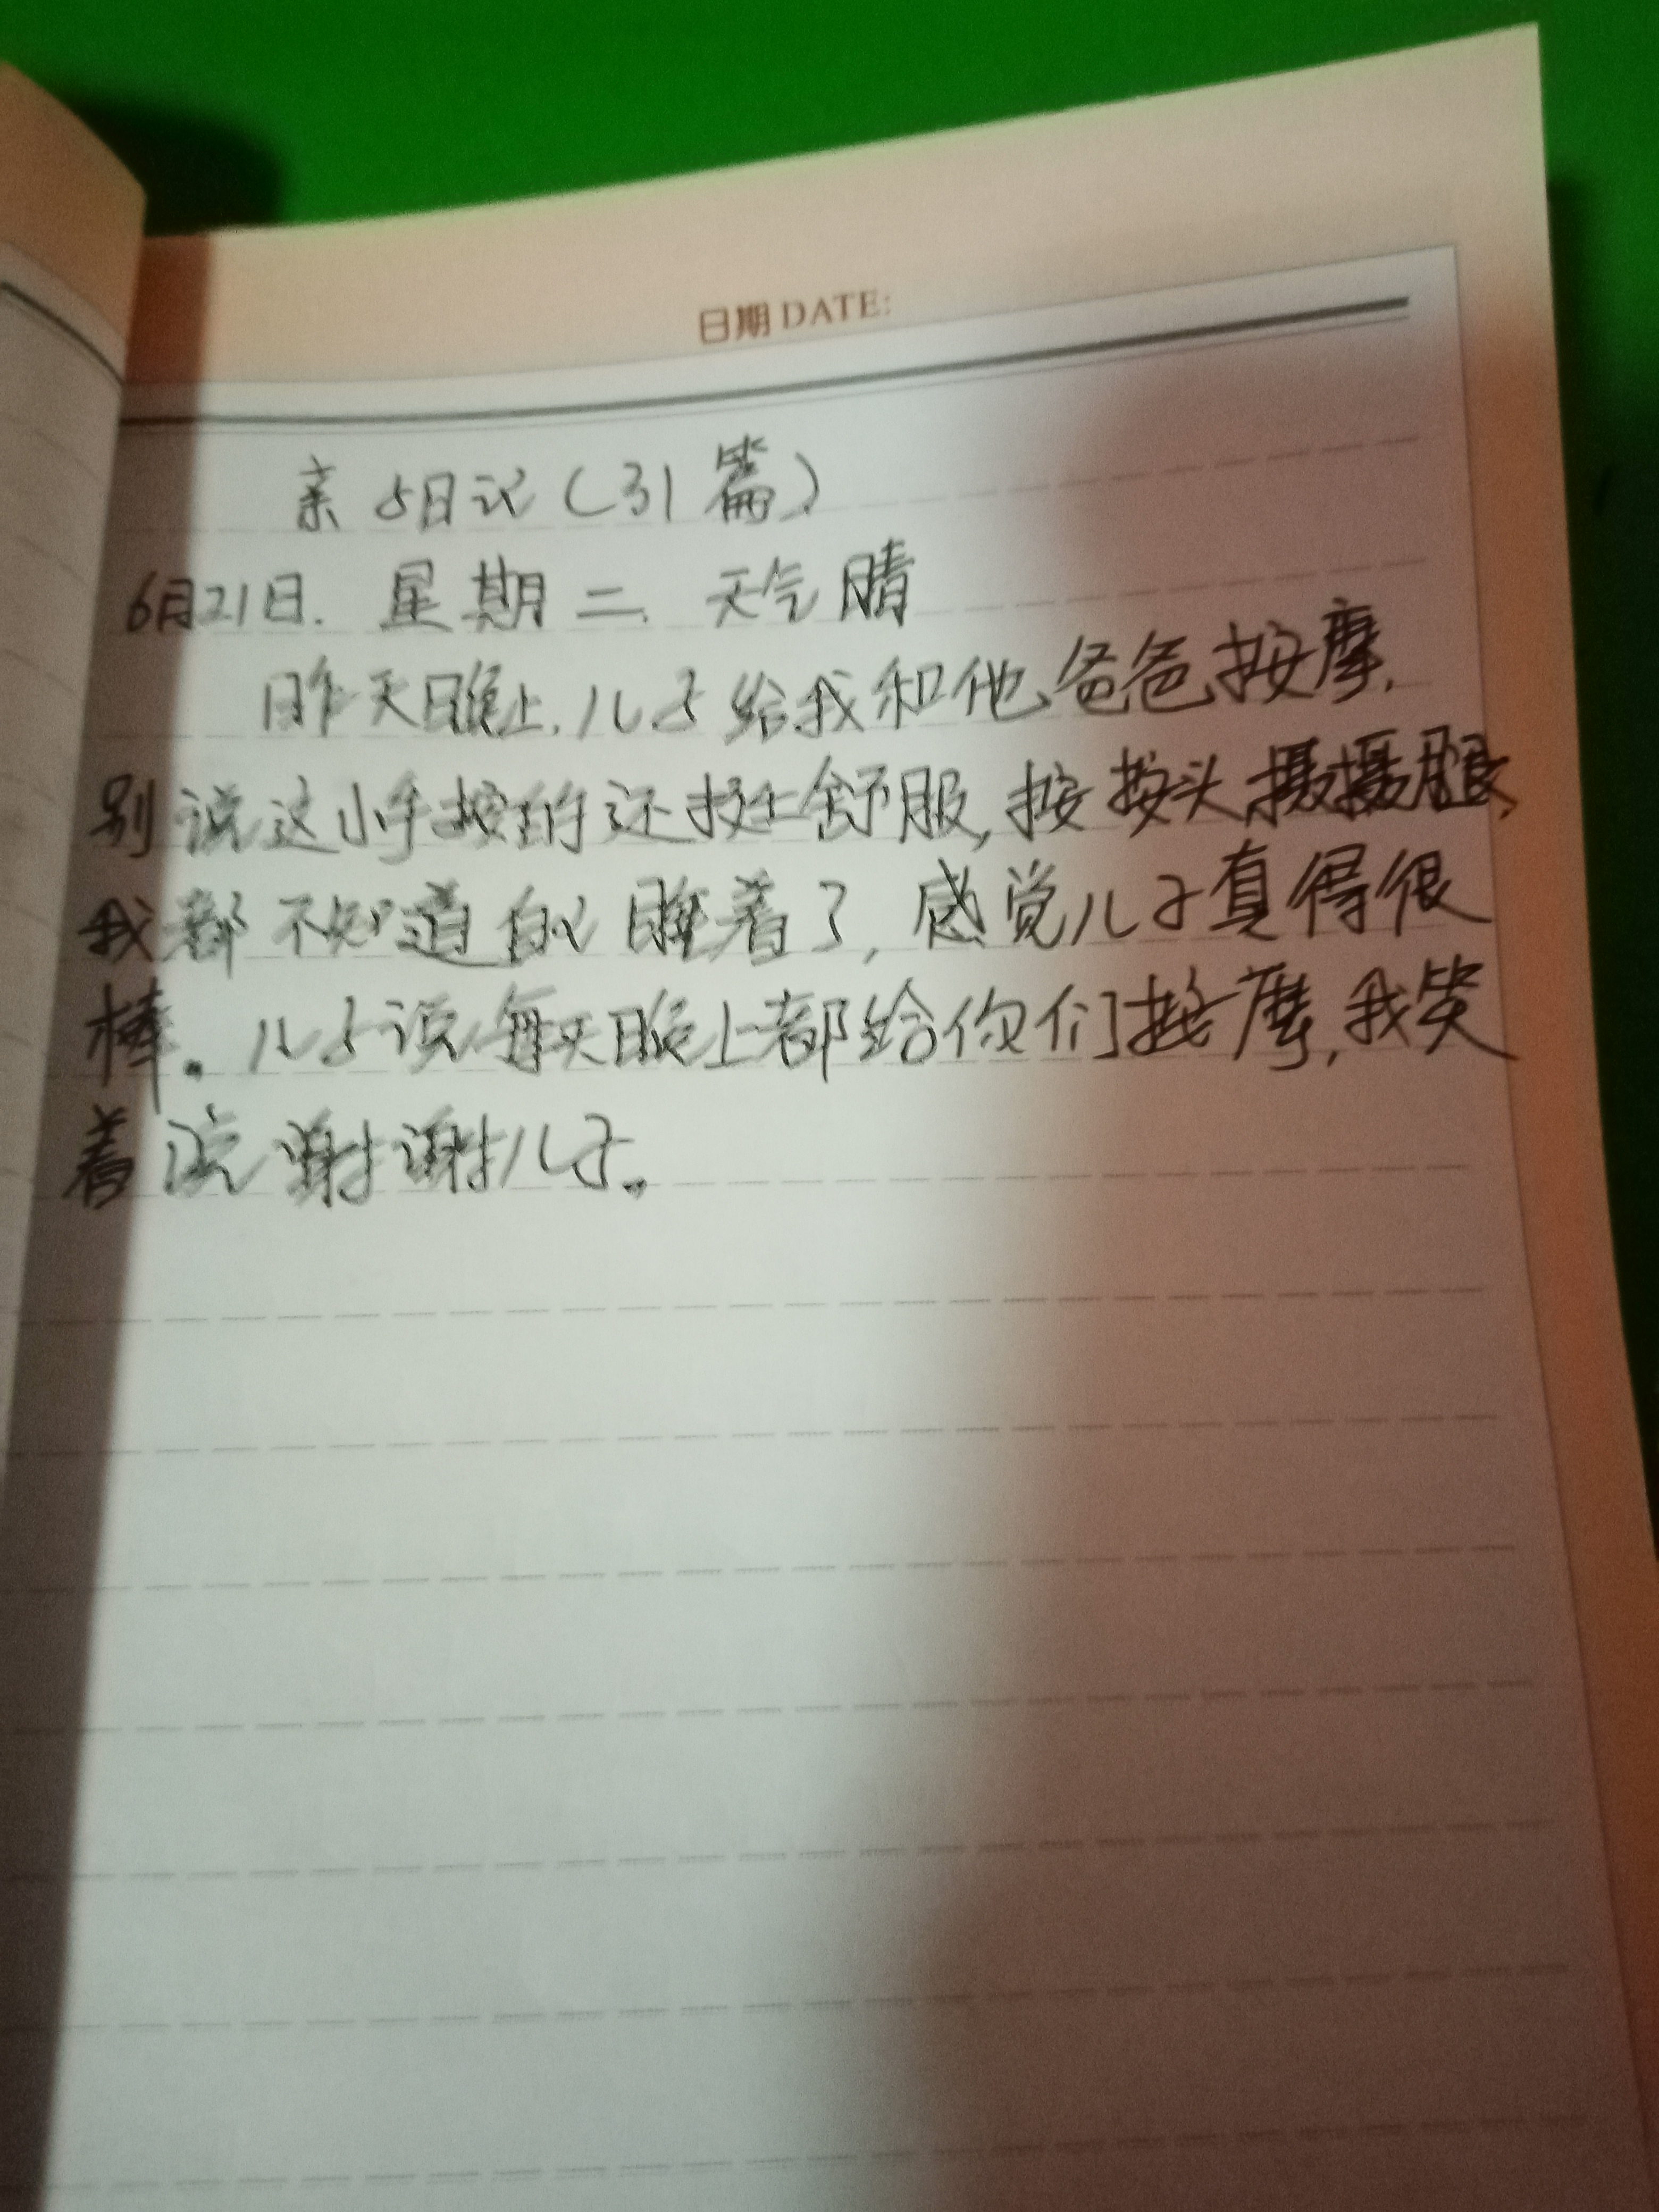 日期 DATE:
亲子日记(31篇)
6月21日. 星期二. 天气晴
昨天晚上,儿子给我和他爸爸按摩,
别说这小手按的还挺舒服,按按头,摄摄腿,
我都不知道自己睡着了,感觉儿子真得很
棒。儿子说每天晚上都给你们按摩,我笑
着说谢谢儿子。